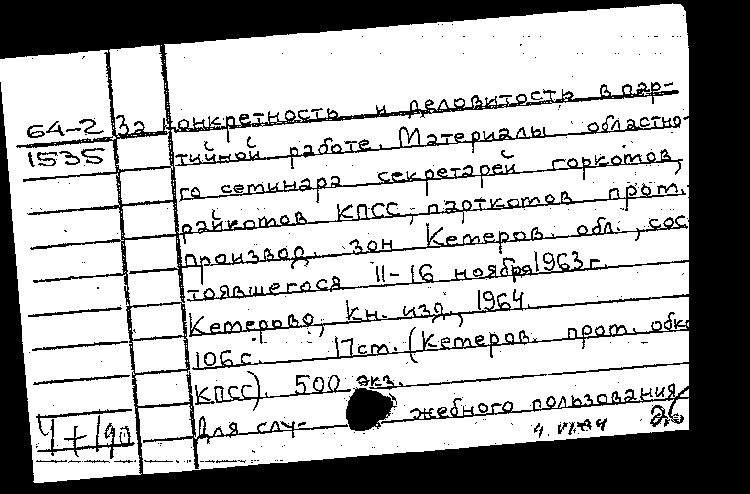 64-2 За конкретность и деловитость в пар-
1535 тийной работе. Материалы областно-
го семинара секретарей горкомов,
райкомов КПСС, парткомов пром.
производ. зон Кемеров. обл., сос
тоявшегося 11-16 ноября 1963 г.
Кемерово, Кн. изд., 1964.
106 с. 17 см. (Кемеров. пром. обко
КПСС). 500 экз.
Для слу- жебного пользования